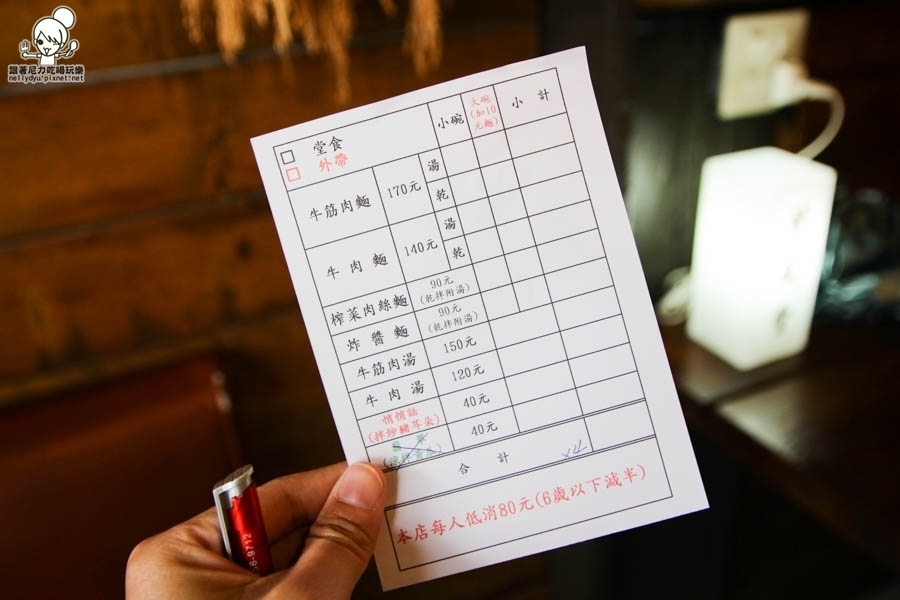 跟著尼力吃喝玩樂
nellydyu.pixnet.net
堂食
外帶
小碗
大碗
(加10
元麵)
小 計
牛筋肉麵 170元 湯
乾
牛 肉 麵 140元 湯
乾
榨菜肉絲麵 90元
(乾拌附湯)
炸 醬 麵 90元
(乾拌附湯)
牛筋肉湯 150元
牛 肉 湯 120元
悄悄話
(拌炒豬耳朵) 40元
40元
合 計
本店每人低消80元(6歲以下減半)